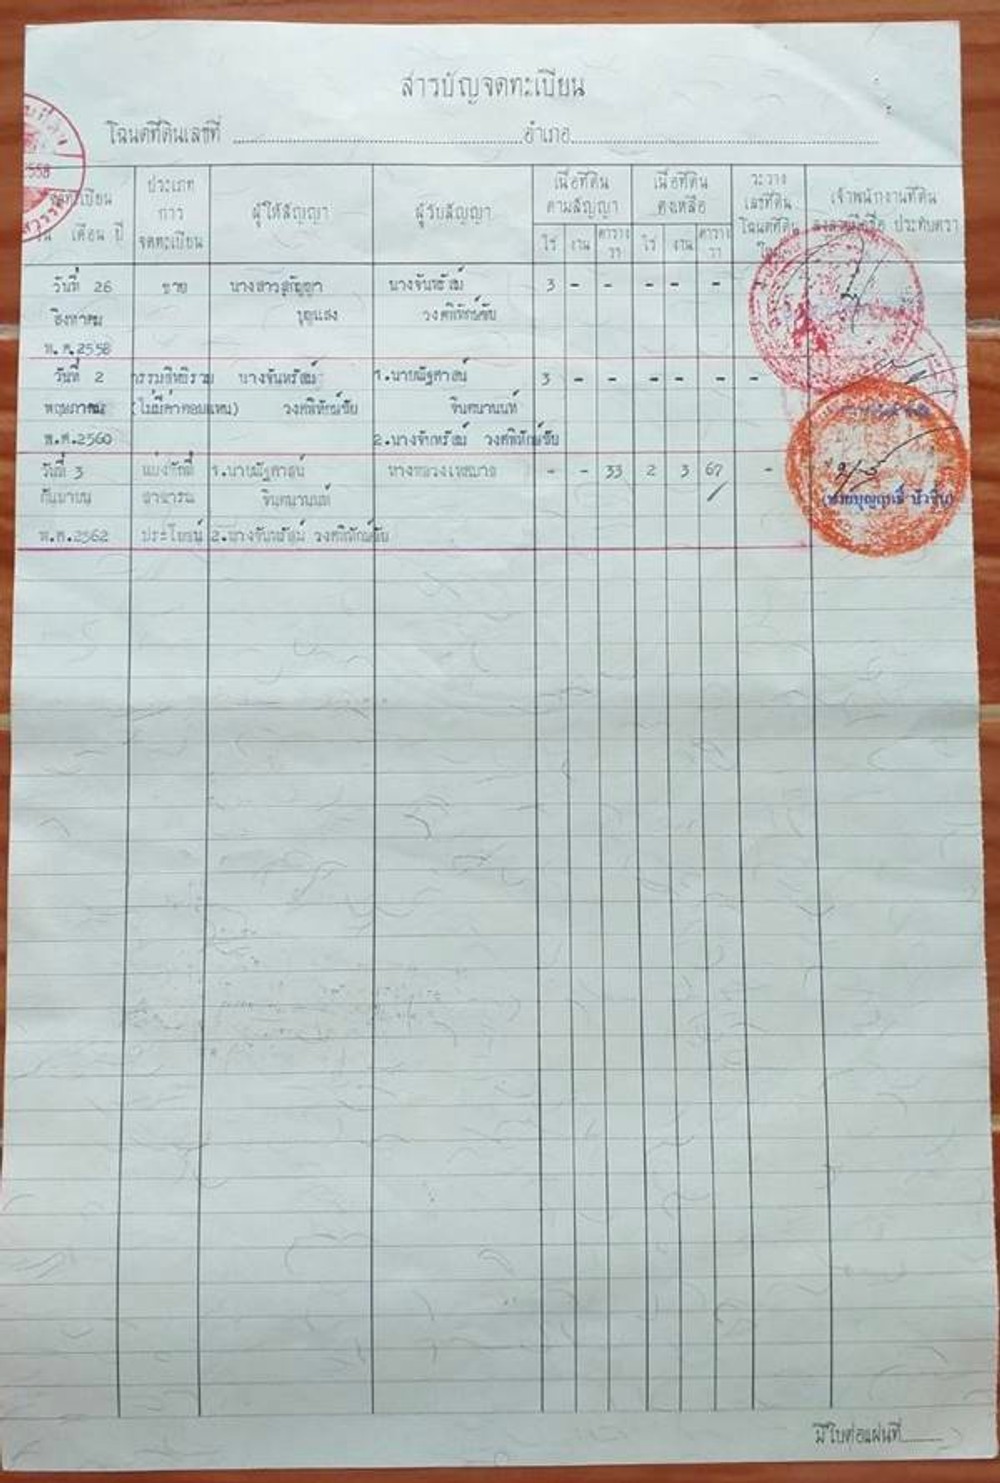 สารบัญจดทะเบียน
โฉนดที่ดินเลขที่ อำเภอ
จดทะเบียน
วัน เดือน ปี
ประเภท
การ
จดทะเบียน
ผู้ให้สัญญา
ผู้รับสัญญา
เนื้อที่ดิน
ตามสัญญา
ไร่ งาน ตาราง
วา
เนื้อที่ดิน
คงเหลือ
ไร่ งาน ตาราง
วา
ระวาง
เลขที่ดิน
โฉนดที่ดิน
เจ้าพนักงานที่ดิน
ลงลายมือชื่อ ประทับตรา
2558
วันที่ 26 ขาย นางสาวสุกัญญา นางจันทรัสม์ 3 - - - - - -
สิงหาคม บุญแสง วงศ์พิทักษ์ชัย
พ.ศ.2558
วันที่ 2 กรรมสิทธิรวม นางจันทรัสม์ 1.นายณัฐศาสน์ 3 - - - - - -
พฤษภาคม (ไม่มีค่าตอบแทน) วงศ์พิทักษ์ชัย จินตนานนท์
พ.ศ.2560 2.นางจันทรัสม์ วงศ์พิทักษ์ชัย
วันที่ 3 แบ่งหักที่ 1.นายณัฐศาสน์ ทางหลวงเทศบาล - - 33 2 3 67 -
กันยายน สาธารณ จินตนานนท์
พ.ศ.2562 ประโยชน์ 2.นางจันทรัสม์ วงศ์พิทักษ์ชัย
มีใบต่อแผ่นที่